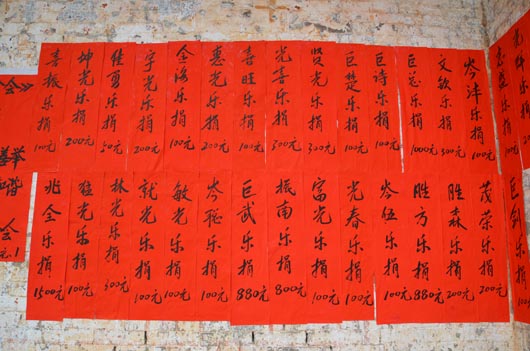 会》
善举
和谐
会
元!
喜振乐捐100元
坤光乐捐200元
佳勇乐捐50元
宇光乐捐200元
全海乐捐100元
惠光乐捐200元
喜旺乐捐100元
光喜乐捐300元
贤光乐捐300元
巨楚乐捐100元
巨诗乐捐100元
巨总乐捐100元
文钦乐捐100元
岑沣乐捐100元
乐捐100元
兆全乐捐1500元
光乐捐100元
林光乐捐300元
就光乐捐100元
敏光乐捐100元
岑聪乐捐100元
巨武乐捐880元
振南乐捐800元
富光乐捐100元
光春乐捐100元
岑伍乐捐100元
胜方乐捐880元
胜森乐捐200元
茂荣乐捐200元
巨剑乐捐